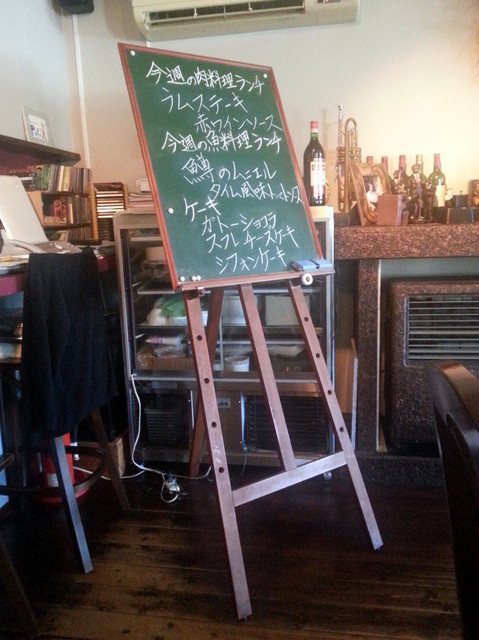 今週の肉料理ランチ
ラムステーキ
赤ワインソース
今週の魚料理ランチ
鱒のムニエル
タイム風味トマトソース
・ケーキ
ガトーショコラ
スフレチーズケーキ
シフォンケーキ